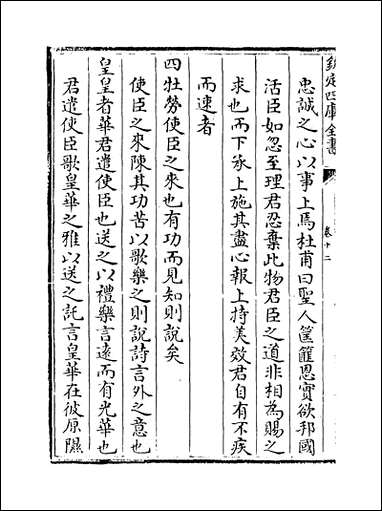 欽定四庫全書
卷十二
忠誠之心以事上焉杜甫曰聖人筐篚恩實欲邦國
活臣如忽至理君忍棄此物君臣之道非相為賜之
求也而下承上施其盡心報上持美效君自有不疾
而速者
四牡勞使臣之來也有功而見知則說矣
使臣之來陳其功苦以歌樂之則說詩言外之意也
皇皇者華君遣使臣也送之以禮樂言遠而有光華也
君遣使臣歌皇華之雅以送之託言皇華在彼原隰